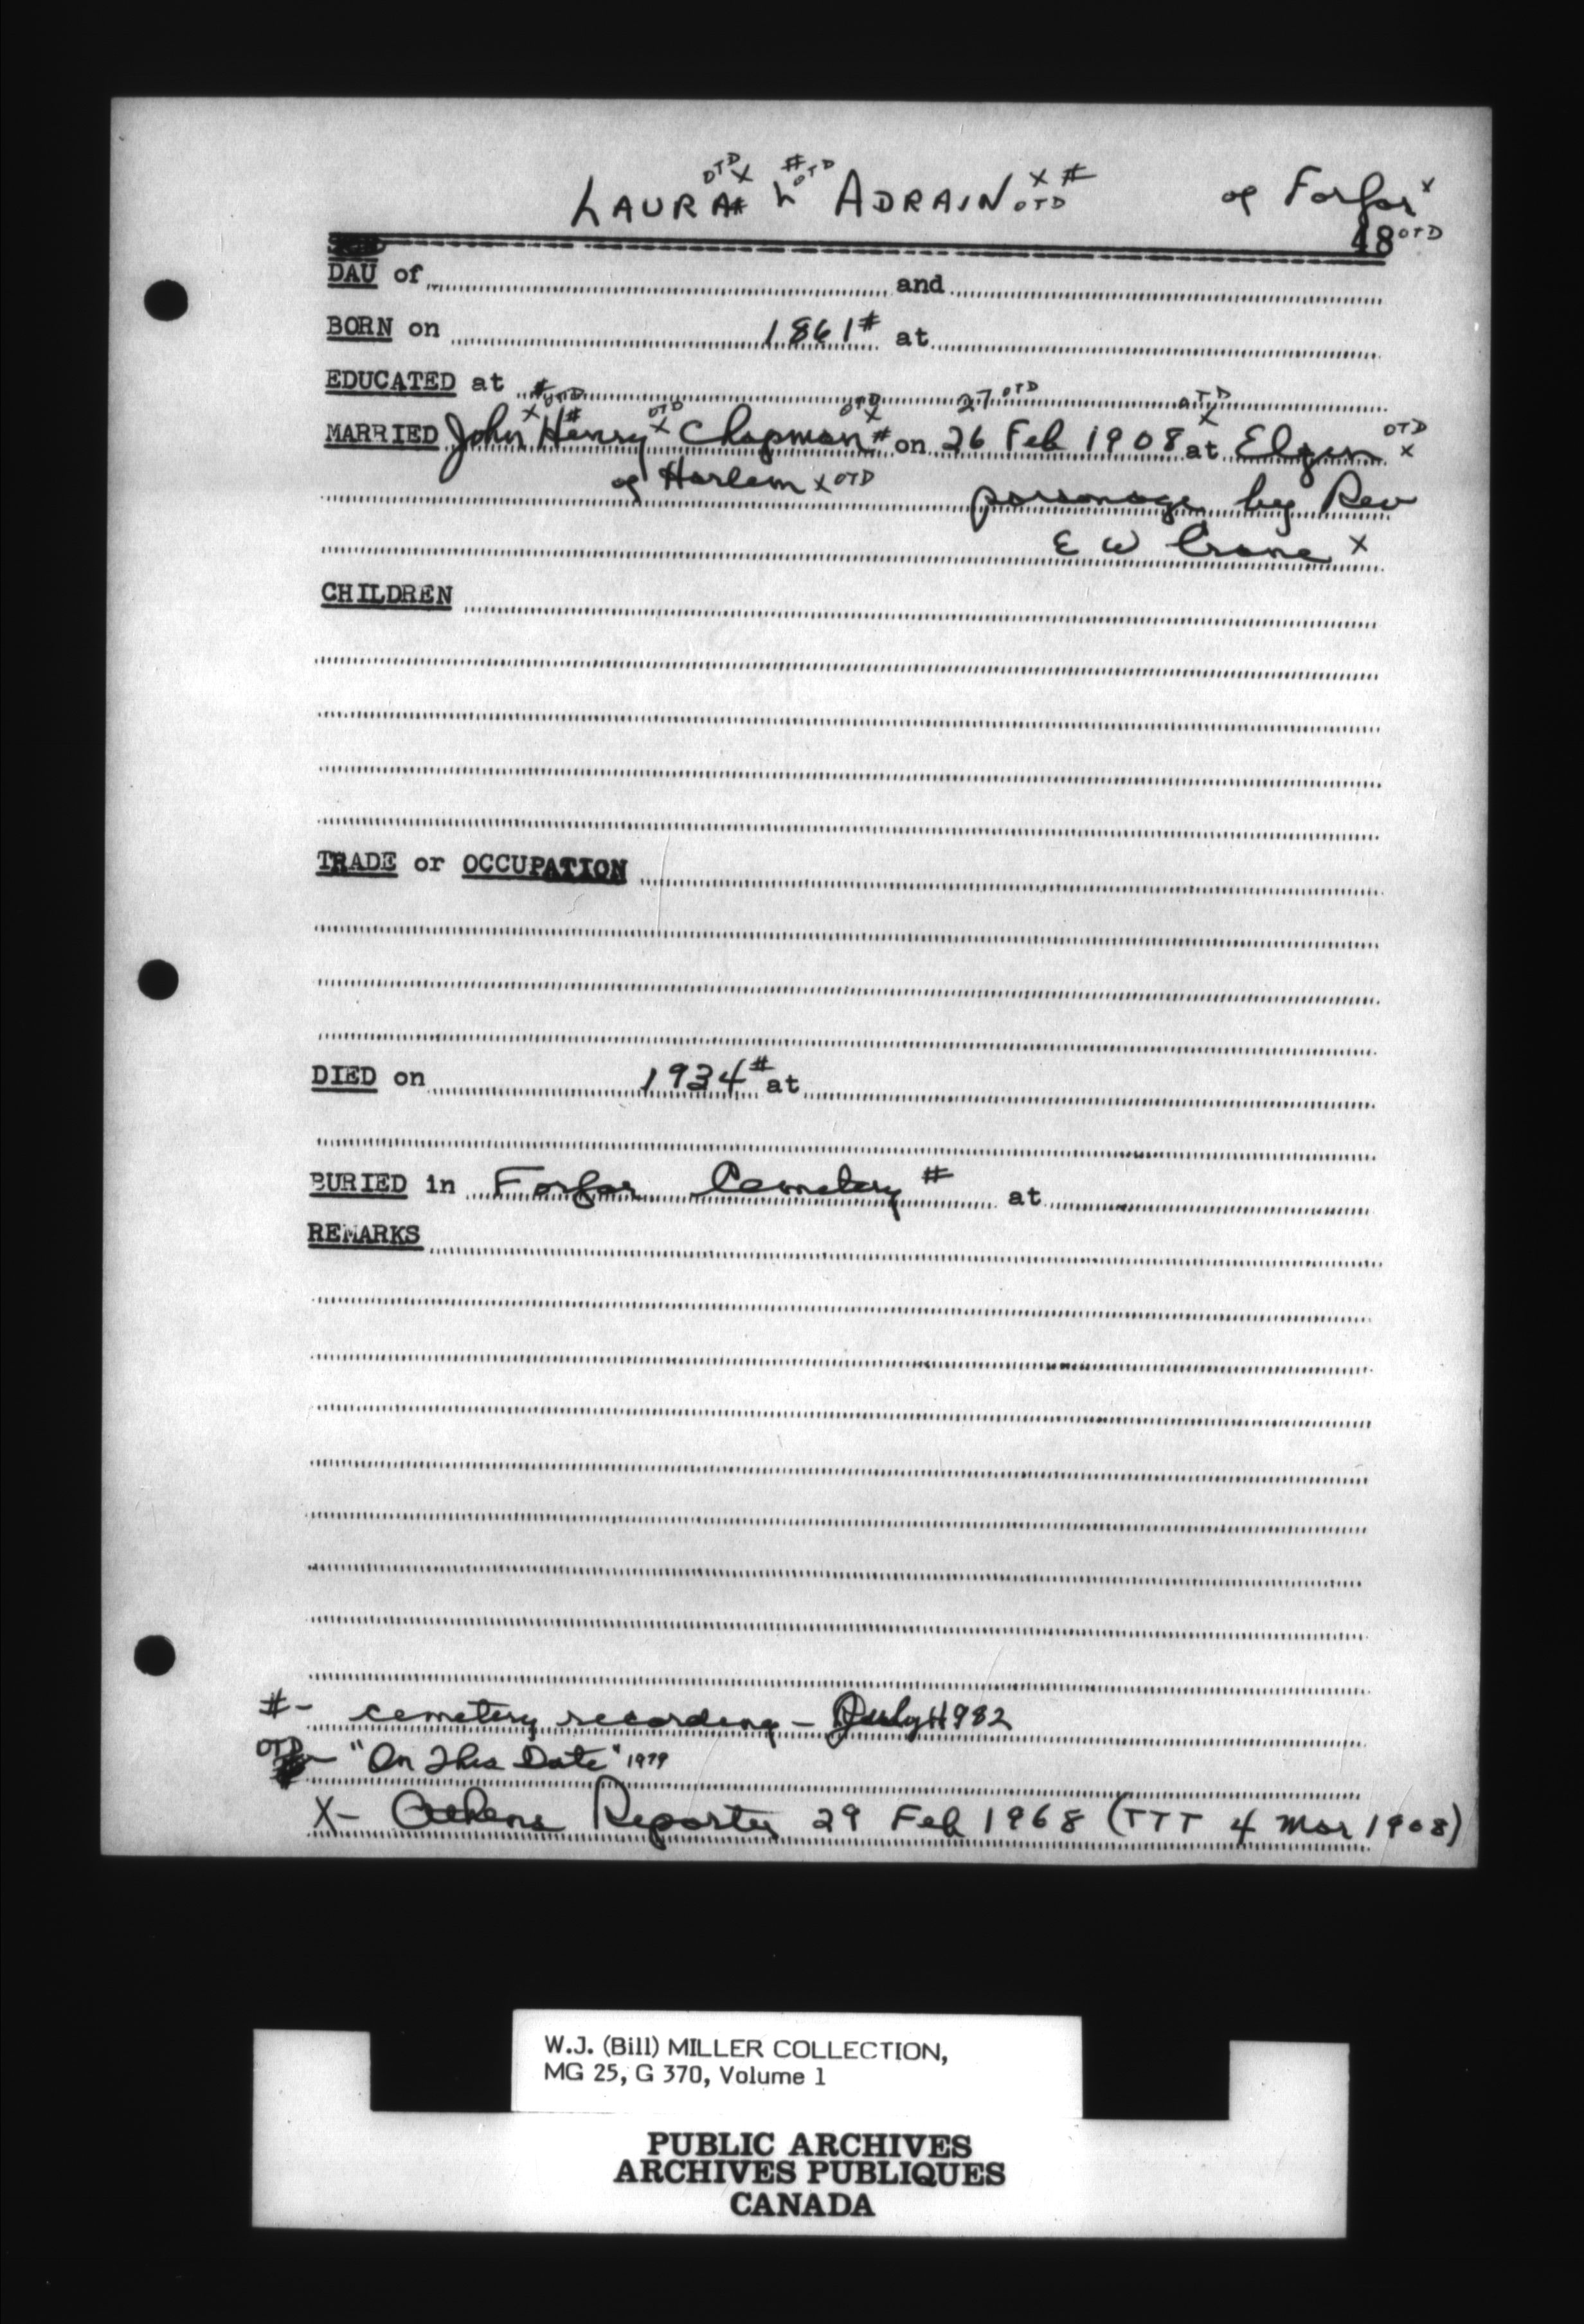 OTD X # OTD X #
LAURA# L ADRAIN OTD of Forfar X
48 OTD
DAU of and
BORN on 1861# at
EDUCATED at
# OTD OTD OTD 27 OTD OTD OTD
MARRIED John X Henry# X Chapman X # on 26 Feb 1908 X at Elgin X
of Harlem X OTD parsonage by Rev
E W Crane X
CHILDREN
TRADE or OCCUPATION
DIED on 1934# at
BURIED in Forfar Cemetery # at
REMARKS
#- cemetery recording - July 1982
OTD - "On This Date" 1979
X- Athens Reporter 29 Feb 1968 (TTT 4 Mar 1908)
W.J. (Bill) MILLER COLLECTION,
MG 25, G 370, Volume 1
PUBLIC ARCHIVES
ARCHIVES PUBLIQUES
CANADA